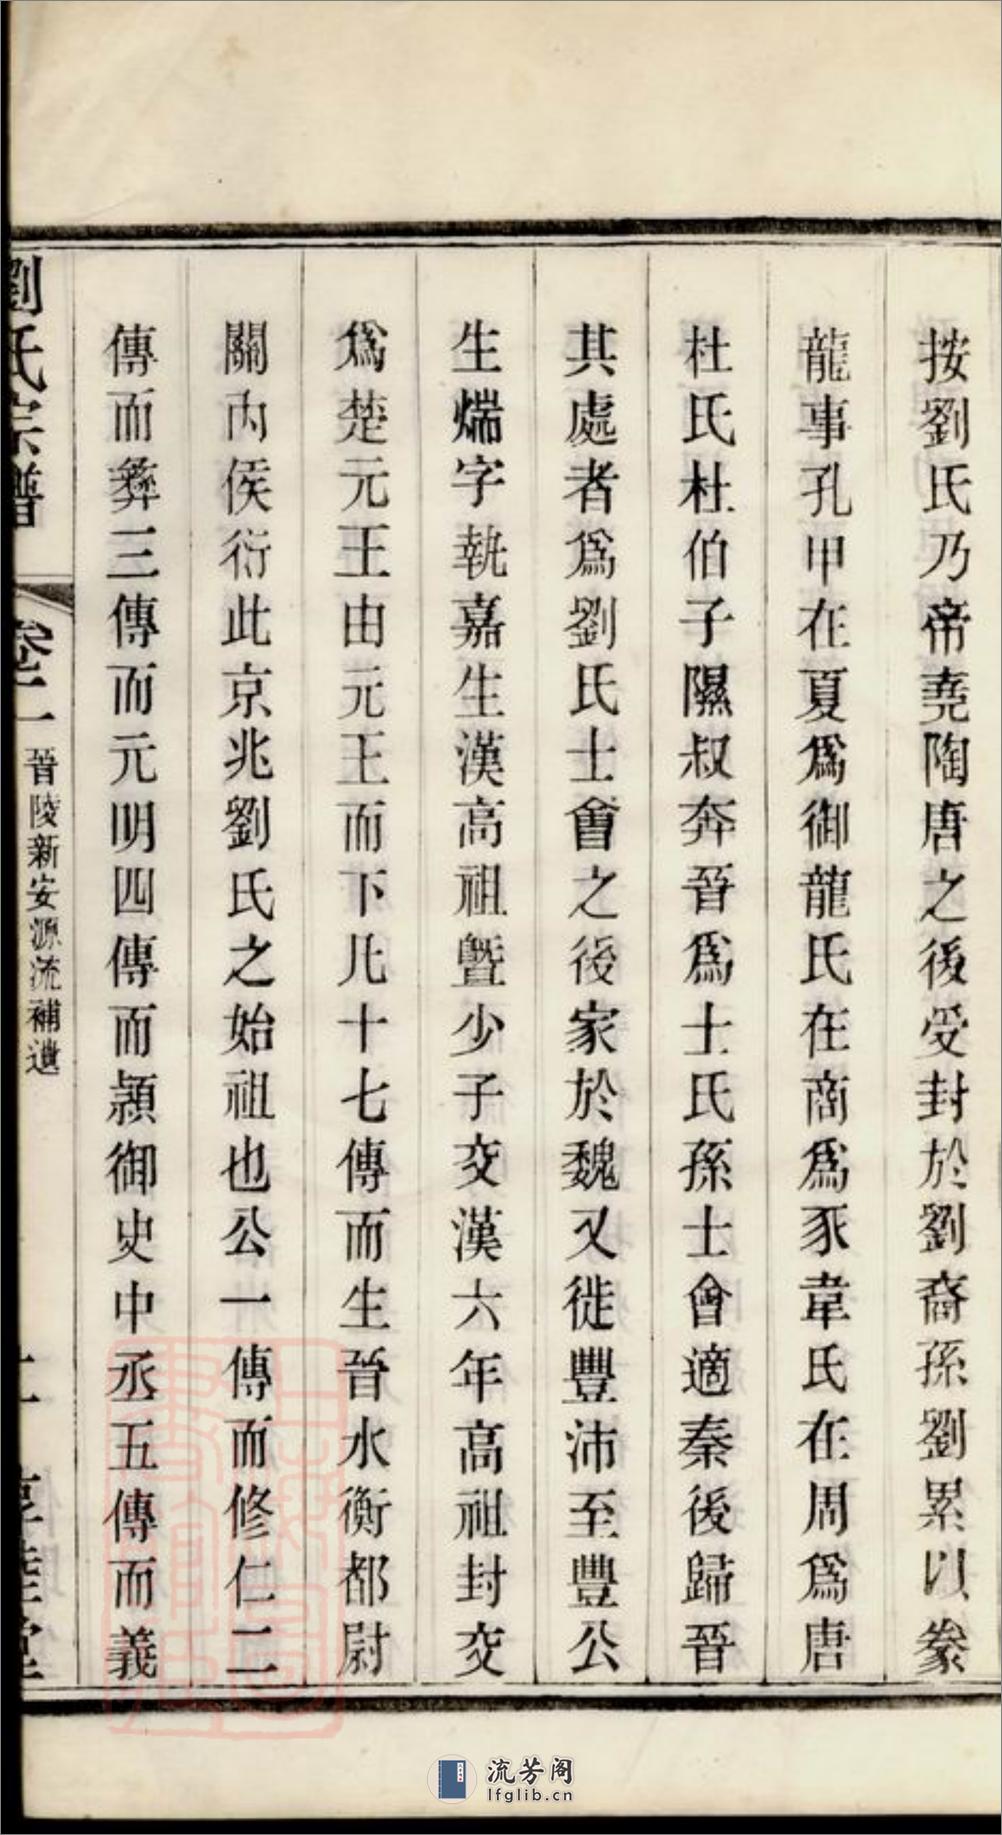 按劉氏乃帝堯陶唐之後受封於劉裔孫劉累以豢
龍事孔甲在夏爲御龍氏在商爲豕韋氏在周爲唐
杜氏杜伯子隰叔奔晉爲士氏孫士會適秦後歸晉
其處者爲劉氏士會之後家於魏又徙豐沛至豐公
生煓字執嘉生漢高祖曁少子交漢六年高祖封交
爲楚元王由元王而下凡十七傳而生晉水衡都尉
關內侯衍此京兆劉氏之始祖也公一傳而修仁二
傳而彝三傳而元明四傳而潁御史中丞五傳而義
劉氏宗譜
卷二
晉陵新安源流補遺
流芳阁
lfglib.cn